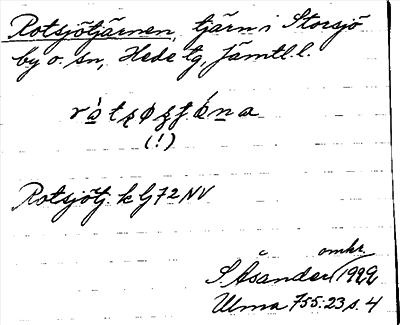 Rotsjötjärnen, tjärn i Storsjö
by o. sn, Hede tg, Jämtl. l.
(!)
Rotsjötj. k bj 72 NV
omkr.
S Åsander 1922
Ulma 755:23 s. 4